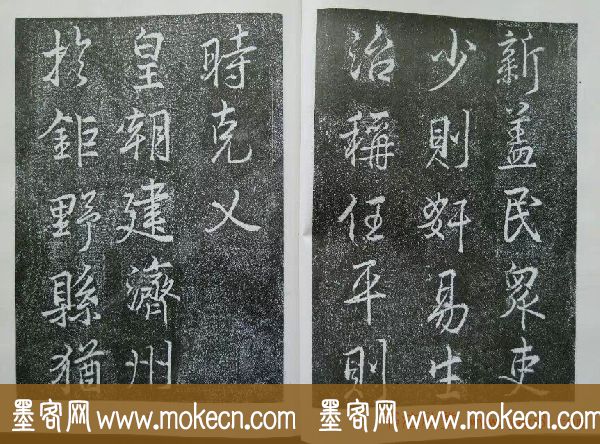 新蓋民眾吏
少則奸易生
治稱任平則
時克乂
皇朝建濟州
於鉅野縣猶
墨客网 www.mokecn.com 墨客网 www.mokecn.com